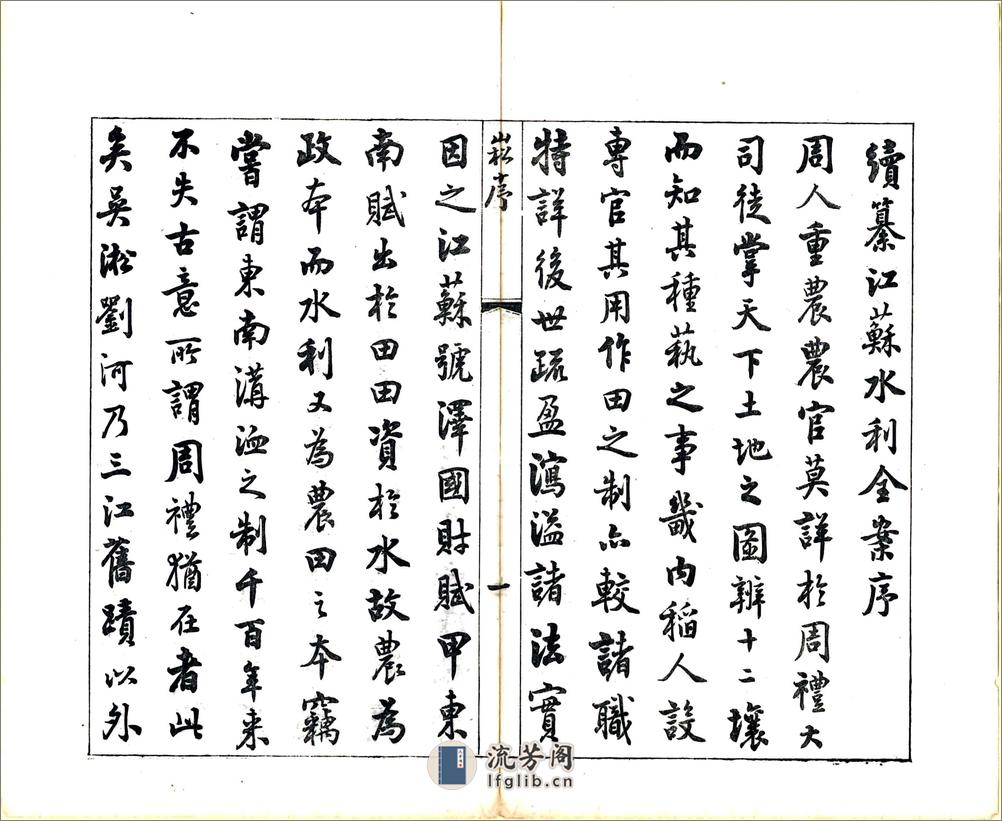 續纂江蘇水利全案序
周人重農農官莫詳於周禮大
司徒掌天下土地之圖辨十二壤
而知其種蓺之事畿內稻人設
專官其用作田之制亦較諸職
特詳後世疏盈瀉溢諸法實
崧序
一
因之江蘇號澤國財賦甲東
南賦出於田田資於水故農為
政本而水利又為農田之本竊
嘗謂東南溝洫之制千百年来
不失古意所謂周禮猶在者此
矣吳淞劉河乃三江舊蹟以外
流芳阁
lfglib.cn